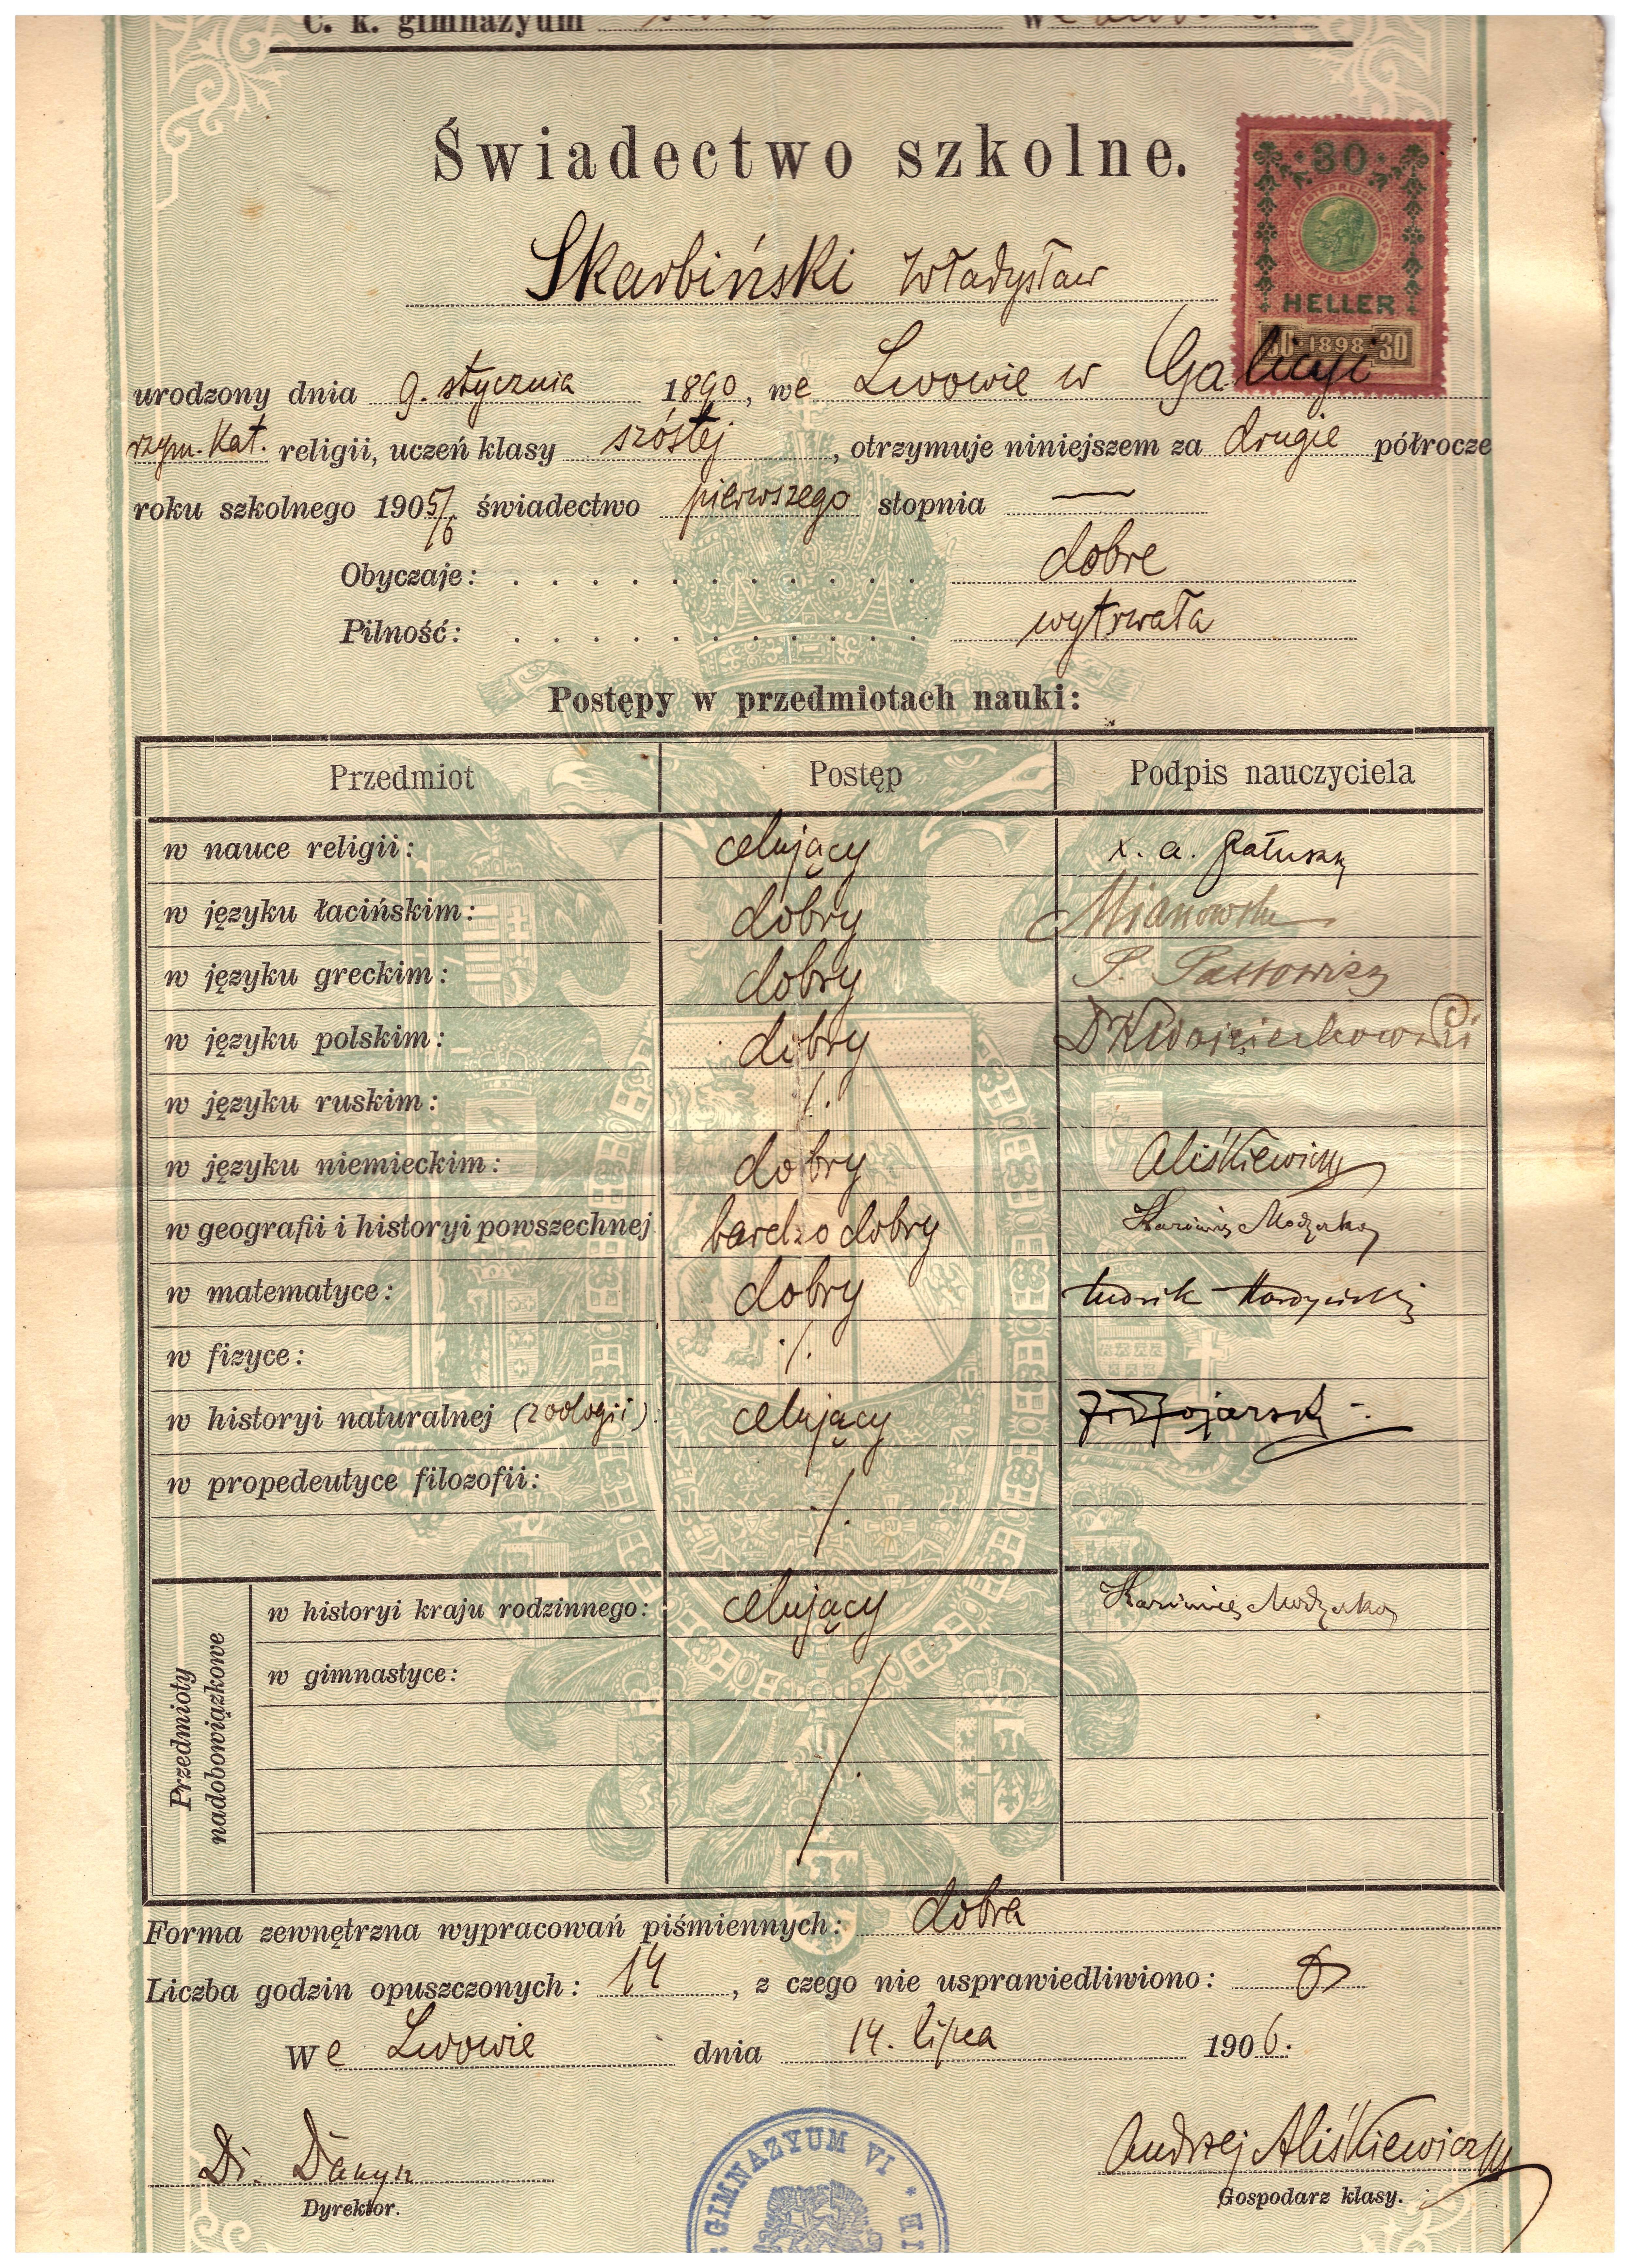 C. k. gimnazyum w
Świadectwo szkolne.
30
HELLER
30 1898 30
Skarbiński Władysław
urodzony dnia 9. stycznia 1890, we Lwowie w Galicyi
rzym. kat. religii, uczeń klasy szóstej, otrzymuje niniejszem za drugie półrocze
roku szkolnego 1905/6 świadectwo pierwszego stopnia —
Obyczaje: dobre
Pilność: wytrwała
Postępy w przedmiotach nauki:
Przedmiot Postęp Podpis nauczyciela
w nauce religii: celujący x. a.
w języku łacińskim: dobry
w języku greckim: dobry
w języku polskim: dobry Dr K Wojciechowski
w języku ruskim: ./.
w języku niemieckim: dobry Aliśkiewicz
w geografii i historyi powszechnej bardzo dobry
w matematyce: dobry
w fizyce: ./.
w historyi naturalnej (zoologii) celujący
w propedeutyce filozofii: ./.
Przedmioty nadobowiązkowe
w historyi kraju rodzinnego: celujący
w gimnastyce: ./.
Forma zewnętrzna wypracowań piśmiennych: dobra
Liczba godzin opuszczonych: 14, z czego nie usprawiedliwiono:
We Lwowie dnia 14. lipca 1906.
Andrzej Aliśkiewicz
Dyrektor. Gospodarz klasy.
GIMNAZYUM VI